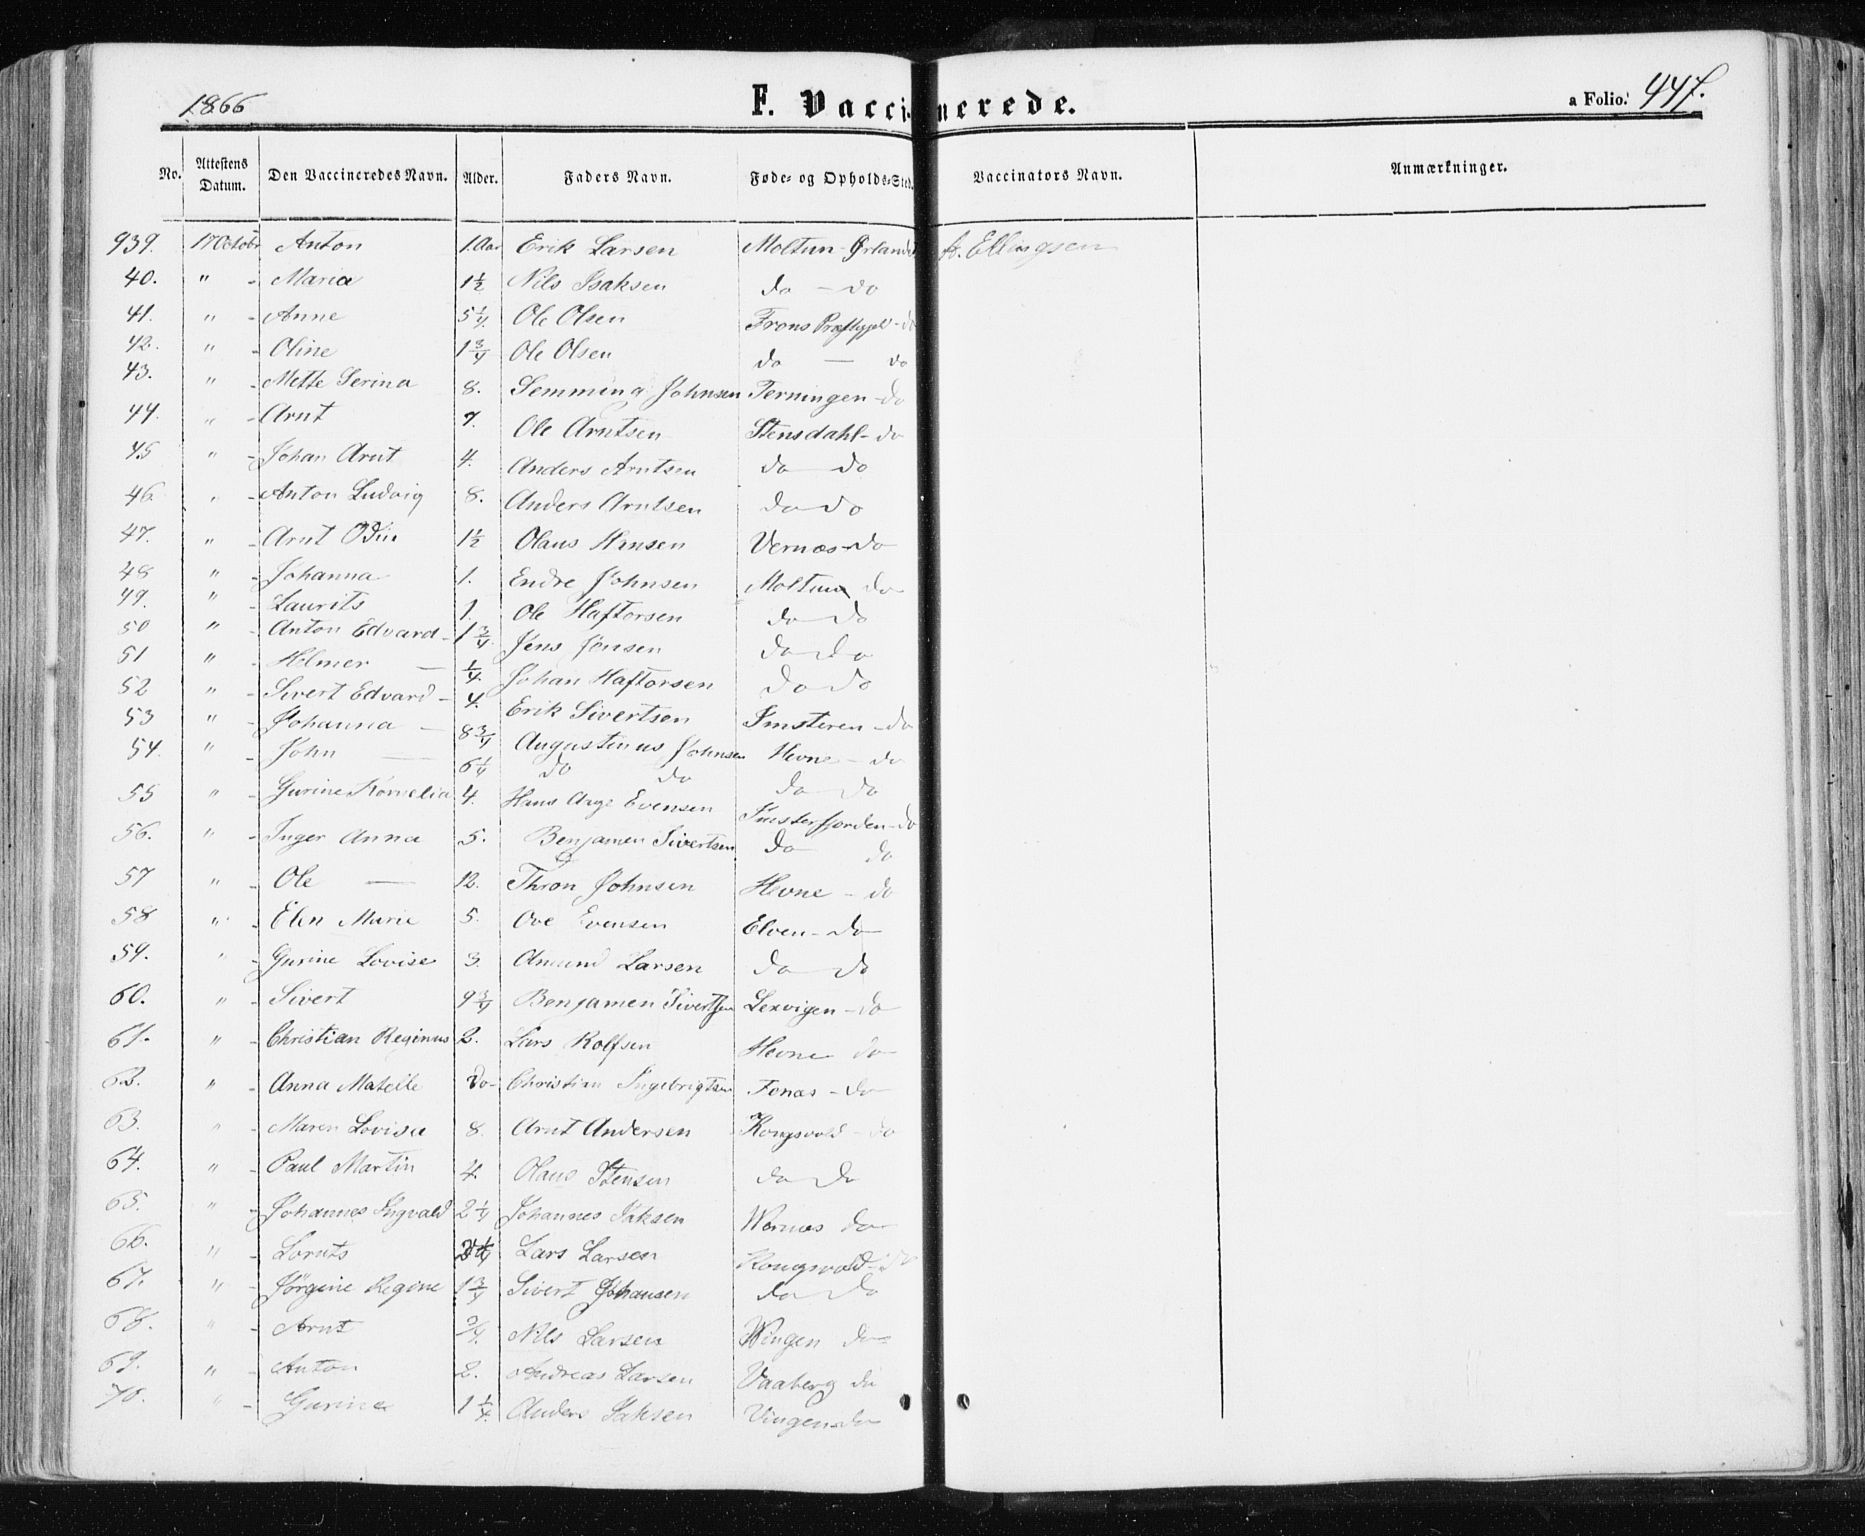 1866 F. Vaccinerede. a Folio. 447.
No. Attestens Datum. Den Vaccineredes Navn. Alder. Faders Navn. Føde- og Opholds-Sted. Vaccinators Navn. Anmærkninger.
939. 17 Octobr Anton 1. Aar Erik Larsen Moltun - Ørlandet A. Ellingsen
40. " - Maria 1½ Nils Isaksen do - do
41. " - Anne 5¼ Ole Olsen Frons Præstegjeld - do
42. " - Oline 1¾ Ole Olsen do — do
43. " - Mette Serina 8. Semming Johnsen Terningen - do
44. " - Arnt 7. Ole Arntsen Stensdahl - do
45 " - Johan Arnt 4. Anders Arntsen do do
46 " - Anton Ludvig 8. Anders Arntsen do do
47. " - Arnt Odin 1½ Olaus Hansen Vernæs - do
48 " - Johanna 1. Endre Johnsen Moltun do
49. " - Laurits 1. Ole Haftorsen do do
50 " - Anton Edvard - 1¾ Jens Jensen do do
51 " - Helmer — ¼ Johan Haftorsen do do
52 " - Sivert Edvard - 4. Erik Sivertsen Imsteren - do
53 " - Johanna — 8¾ Augustinus Johnsen Hevne - do
54. " - John — 6¼ do do do do
55 " - Gurine Kornelia 4. Hans Aage Evensen Imsterfjorden - do
56. " - Inger Anna 5. Benjamen Sivertsen do do
57 " - Ole — 12. Thron Johnsen Hevne - do
58 " - Elen Marie 5. Ove Evensen Elven - do
59. " - Gurine Lovise 3. Amund Larsen do do
60. " - Sivert 9¾ Benjamen Sivertsen Lexvigen - do
61. " - Christian Reginus 2. Lars Rolfsen Hevne do
62. " - Anna Matelle do - Christian Ingebrigtsen Fenas - do
63. " - Maren Lovisa 8. Arnt Andersen Kongsvold - do
64. " - Paul Martin 4. Olaus Stensen do do
65. " - Johannes Ingvald 2¼ Johannes Isaksen Wernæs do
66. " - Loruts Lars Larsen Kongsvold - do
67. " - Jørgine Regine 1¾ Sivert Johansen do do
68. " - Arnt ¾. Nils Larsen Wingen do
69. " - Anton 2. Andreas Larsen Vaaberg do
70. " - Gurine 1¼ Anders Isaksen Vingen do